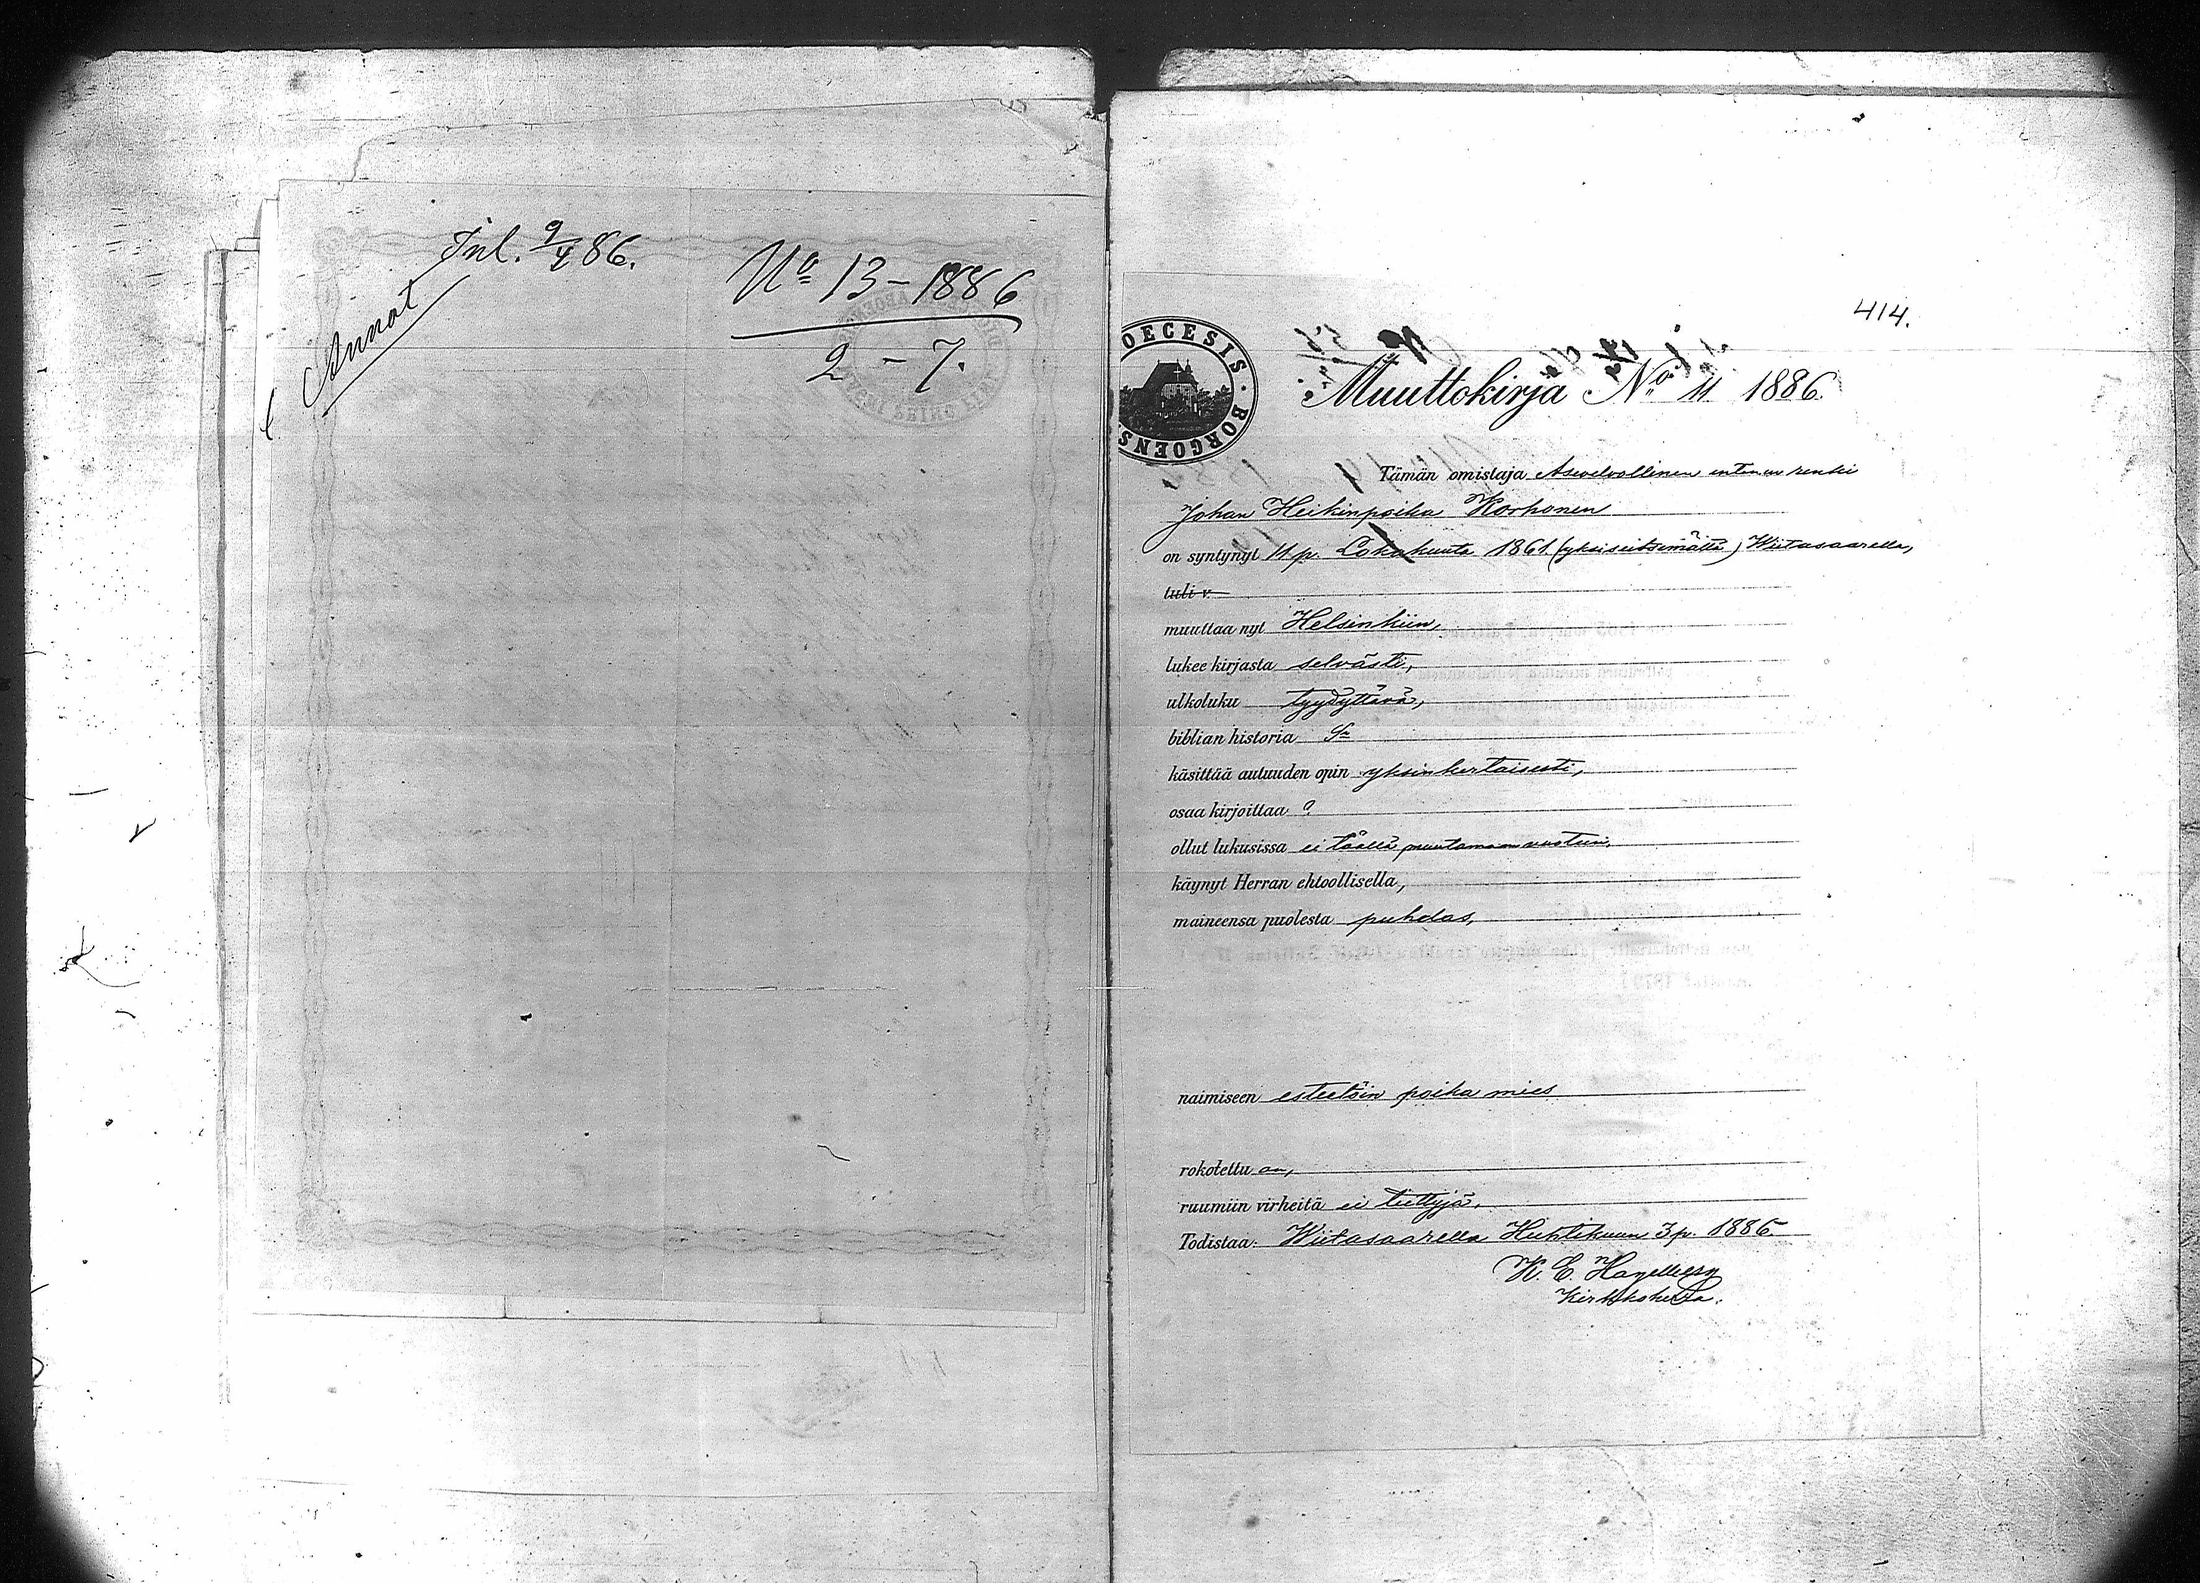 Inl. 9/4 86.
Annot
No 13 - 1886
2 - 7.
414.
DIOECESIS · BORGOENSIS
Muuttokirja No 11 1886.
Tämän omistaja Asevelvollinen entinen renki
Johan Heikinpoika Korhonen
on syntynyt 11 p. Lokakuuta 1861 (yksiseitsemättä) Wiitasaarella,
tuli v.
muuttaa nyt Helsinkiin,
lukee kirjasta selvästi,
ulkoluku tyydyttävä,
biblian historia Sn
käsittää autuuden opin yksinkertaisesti,
osaa kirjoittaa ?
ollut lukusissa ei täällä muutamaan vuoteen,
käynyt Herran ehtoollisella,
maineensa puolesta puhdas,
naimiseen esteetöin poika mies
rokotettu on,
ruumiin virheitä ei tiettyjä.
Todistaa: Wiitasaarella Huhtikuun 3 p. 1886.
K. E. Hagelberg
Kirkkoherra.